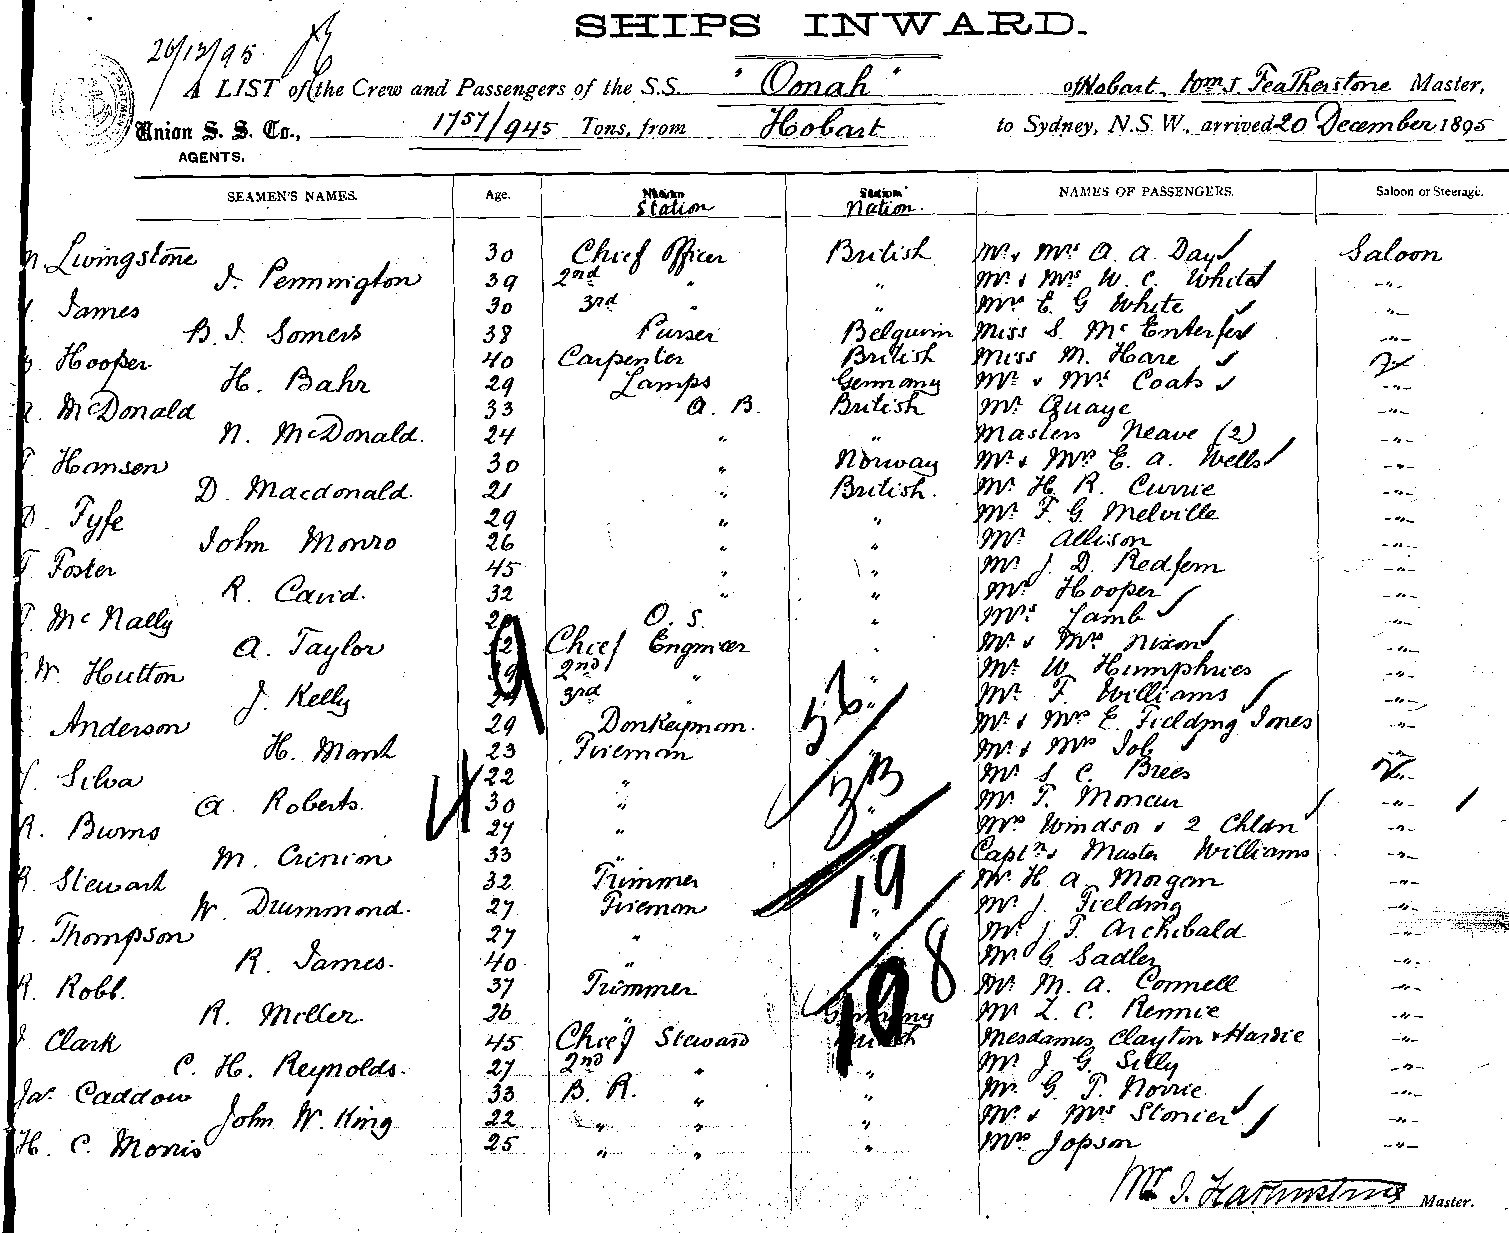 SHIPS INWARD.
20/12/95
A LIST of the Crew and Passengers of the S.S. "Oonah" of Hobart, Wm. J. Featherstone Master,
Union S. S. Co., 1757/945 Tons, from Hobart to Sydney, N.S.W., arrived 20 December 1895
AGENTS.
SEAMEN'S NAMES. Age. Station Nation. NAMES OF PASSENGERS. Saloon or Steerage.
Livingstone 30 Chief Officer British Mr & Mrs A. A. Day Saloon
J. Pennington 39 2nd " " Mr & Mrs W. C. White -"-
James 30 3rd " " Mrs E G White -"-
B. J. Somers 38 Purser Belguim Miss S. McEnterfer -"-
Hooper 40 Carpenter British Miss M. Hare
H. Bahr 29 Lamps Germany Mr & Mrs Coats -"-
McDonald 33 A. B. British Mr Quaye -"-
N. McDonald. 24 " " Masters Neave (2) -"-
Hanson 30 " Norway Mr & Mrs E. A. Wells -"-
D. Macdonald. 21 " British. Mr H R. Currie -"-
Fyfe 29 " " Mr F. G. Melville -"-
John Monro 26 " " Mr Allison -"-
Foster 45 " " Mr J. D. Redfern -"-
R. Caird. 32 " " Mr Hooper -"-
McNally O. S. " Mrs Lamb -"-
A. Taylor Chief Engineer " Mr & Mrs Nixon -"-
W. Hutton 2nd " " Mr W Humphries -"-
J. Kelly 3rd " " Mr F. Williams -"-
Anderson 29 Donkeyman. Mr & Mrs E. Fielding Jones -"-
H. Mant 23 Fireman " Mr & Mrs Job -"-
Silva 22 " Mr S C. Brees -"-
A. Roberts. 30 " " Mr T. Moncur -"-
R. Burns 27 " Mrs Windsor & 2 Chldn -"-
M. Crinion 33 " Capt & Master Williams -"-
R. Stewart 32 Trimmer Mr H A. Morgan -"-
W. Drummond. 27 Fireman " Mr J. Fielding -"-
Thompson 27 " " Mr J. T. Archibald -"-
R. James. 40 " Mr G Sadler -"-
R. Robb. 37 Trimmer Mr M. A. Connell -"-
R. Miller 26 " Germany Mr L. C. Rennie -"-
Clark 45 Chief Steward British Mesdames Clayton & Hardie -"-
C. H. Reynolds. 27 2nd " " Mr J G. Silly -"-
Jas. Caddow 33 B. R. " " Mr G. T. Norrie -"-
John W. King 22 " " " Mr & Mrs Stonier -"-
H. C. Morris 25 " " " Mrs Jopson -"-
9
4
56
33
19
8
10
Wm. J. Featherstone Master.